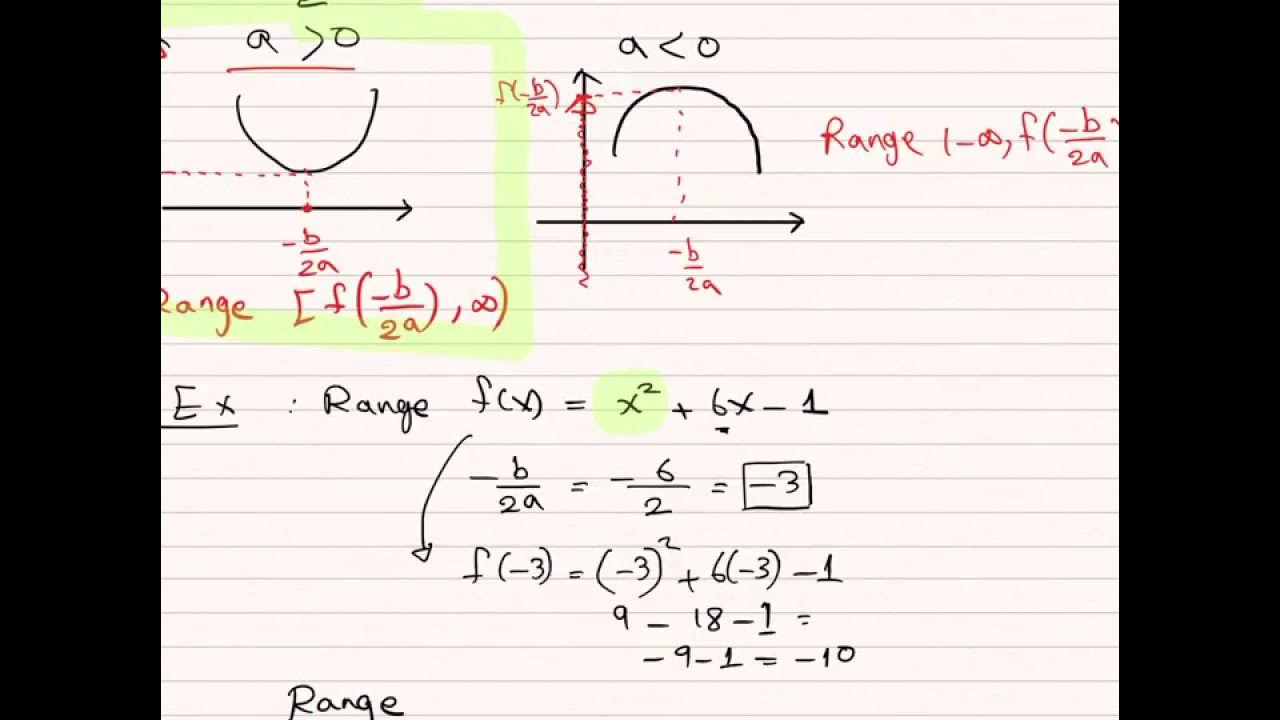 a > 0
a < 0
f(-b/2a)
Range (-∞, f(-b/2a
-b/2a
-b/2a
Range [f(-b/2a), ∞)
Ex : Range f(x) = x² + 6x - 1
-b/2a = -6/2 = -3
f(-3) = (-3)² + 6(-3) - 1
9 - 18 - 1 =
-9 - 1 = -10
Range